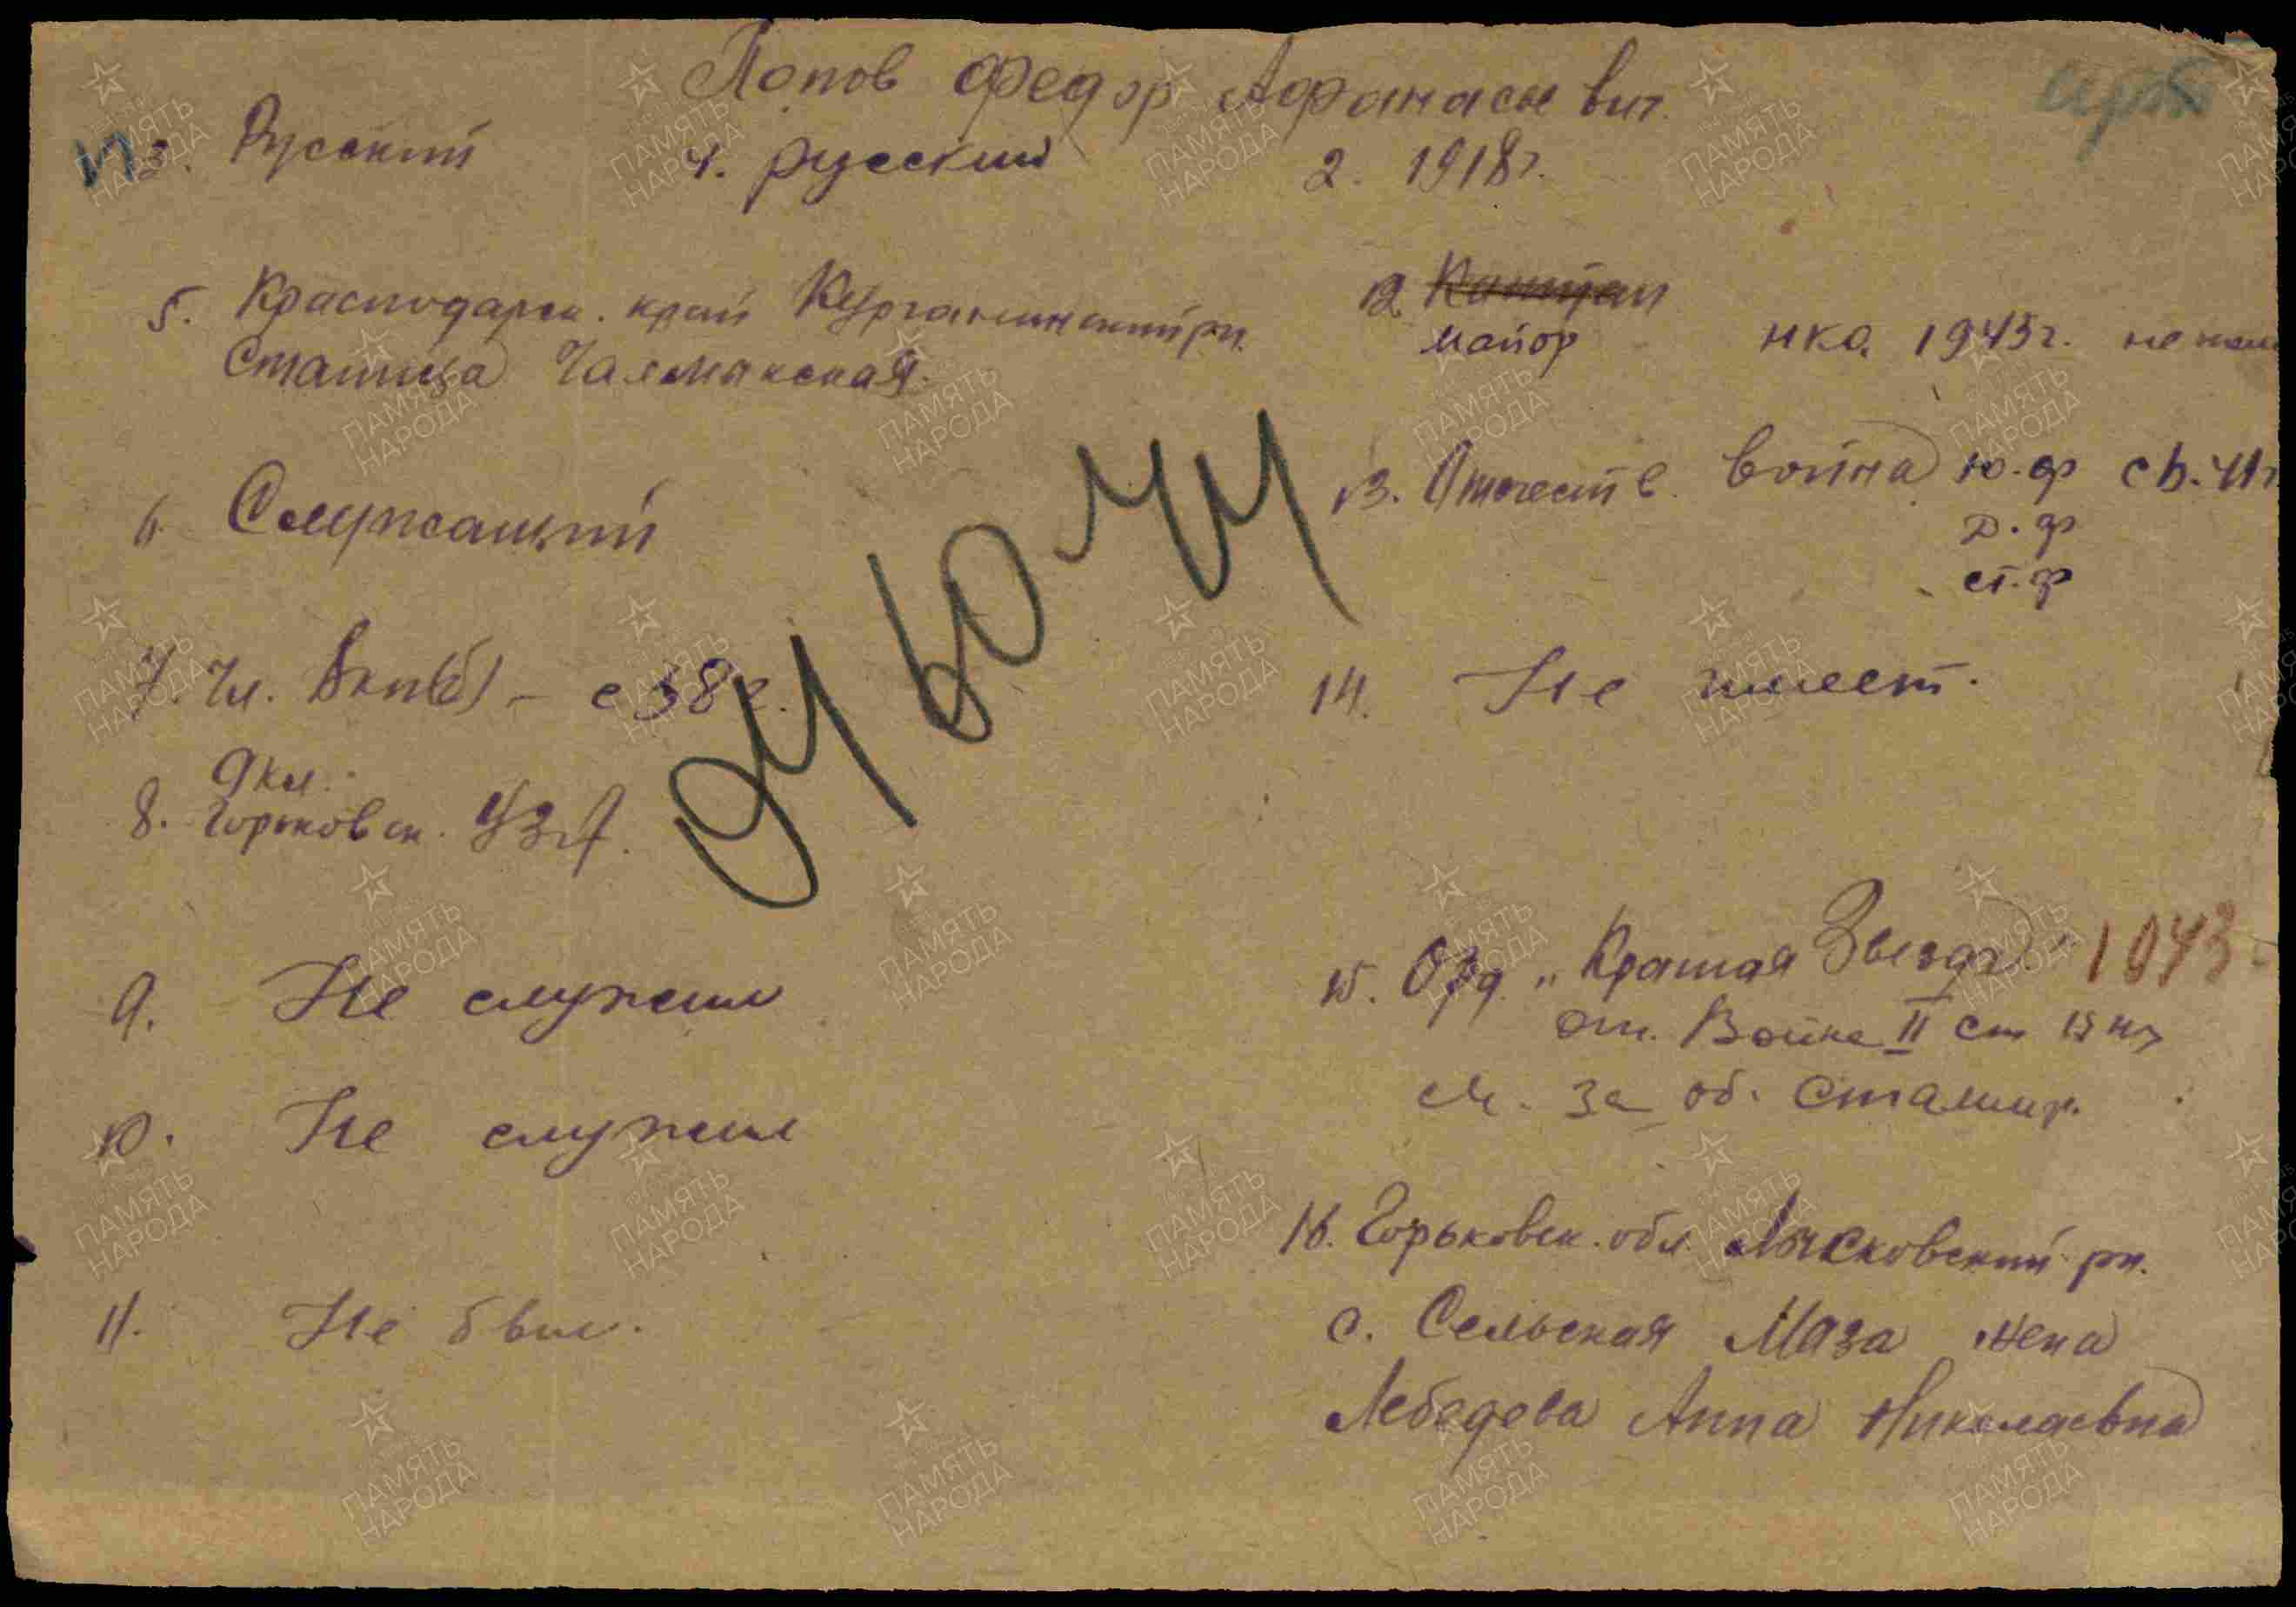 Попов Федор Афанасьевич.
3. Русский 4. русский 2. 1918г.
5. Краснодарск. край Курганинский рн.
Станица Чалмыкская.
12. Капитан
майор НКО. 1945г.
6. Служащий
13. Отечеств. война ю.ф с 6.41г
д.ф
ст.ф
выбыл
7. Чл. ВКП(б) – с 38г.
14. Не имеет.
9 кл.
8. Горьковск. УЗА.
9. Не служил
15. Орд. „Красная Звезда" 1943
от. Война II ст
м. за об. Сталингр.
10. Не служил
16. Горьковск. обл. Лысковский рн.
с. Сельская Маза жена
Лебедева Анна Николаевна
11. Не был.
ПАМЯТЬ НАРОДА